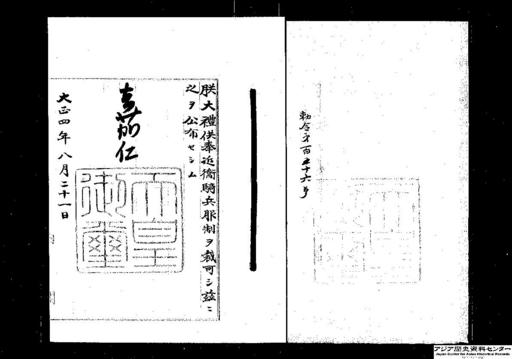 勅令第百五十六号
朕大禮供奉近衛騎兵服制ヲ裁可シ茲ニ
之ヲ公布セシム
嘉仁
天皇
御璽
大正四年八月二十一日
アジア歴史資料センター
Japan Center for Asian Historical Records